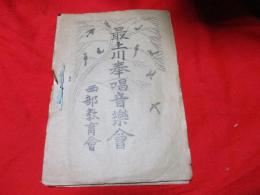 最上川奉唱音樂會
西部教育會